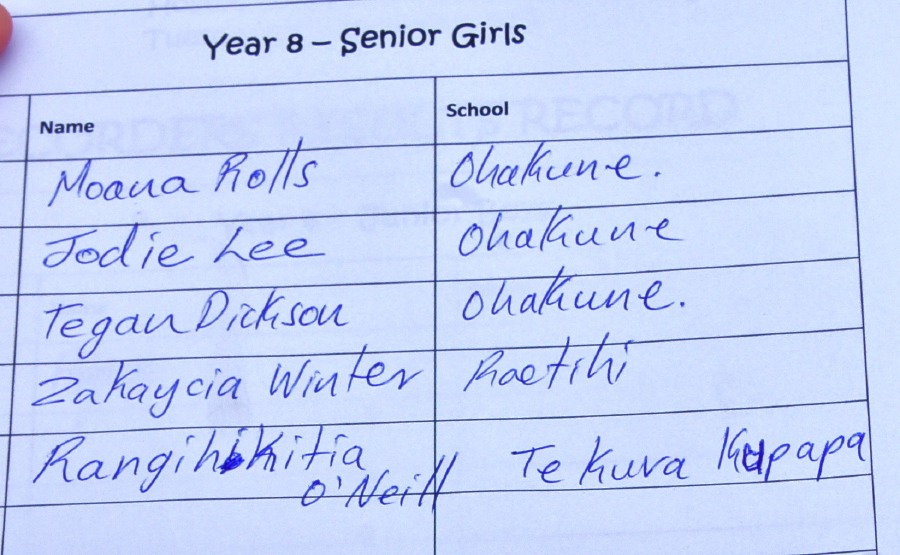 Year 8 – Senior Girls
Name School
Moana Rolls Ohakune.
Jodie Lee Ohakune
Tegan Dickson Ohakune.
Zakaycia Winter Raetihi
Rangihikitia Te Kura Kupapa
O'Neill